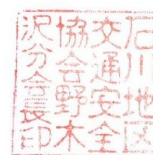 石川地区
交通安全
協会野木
沢分会長印